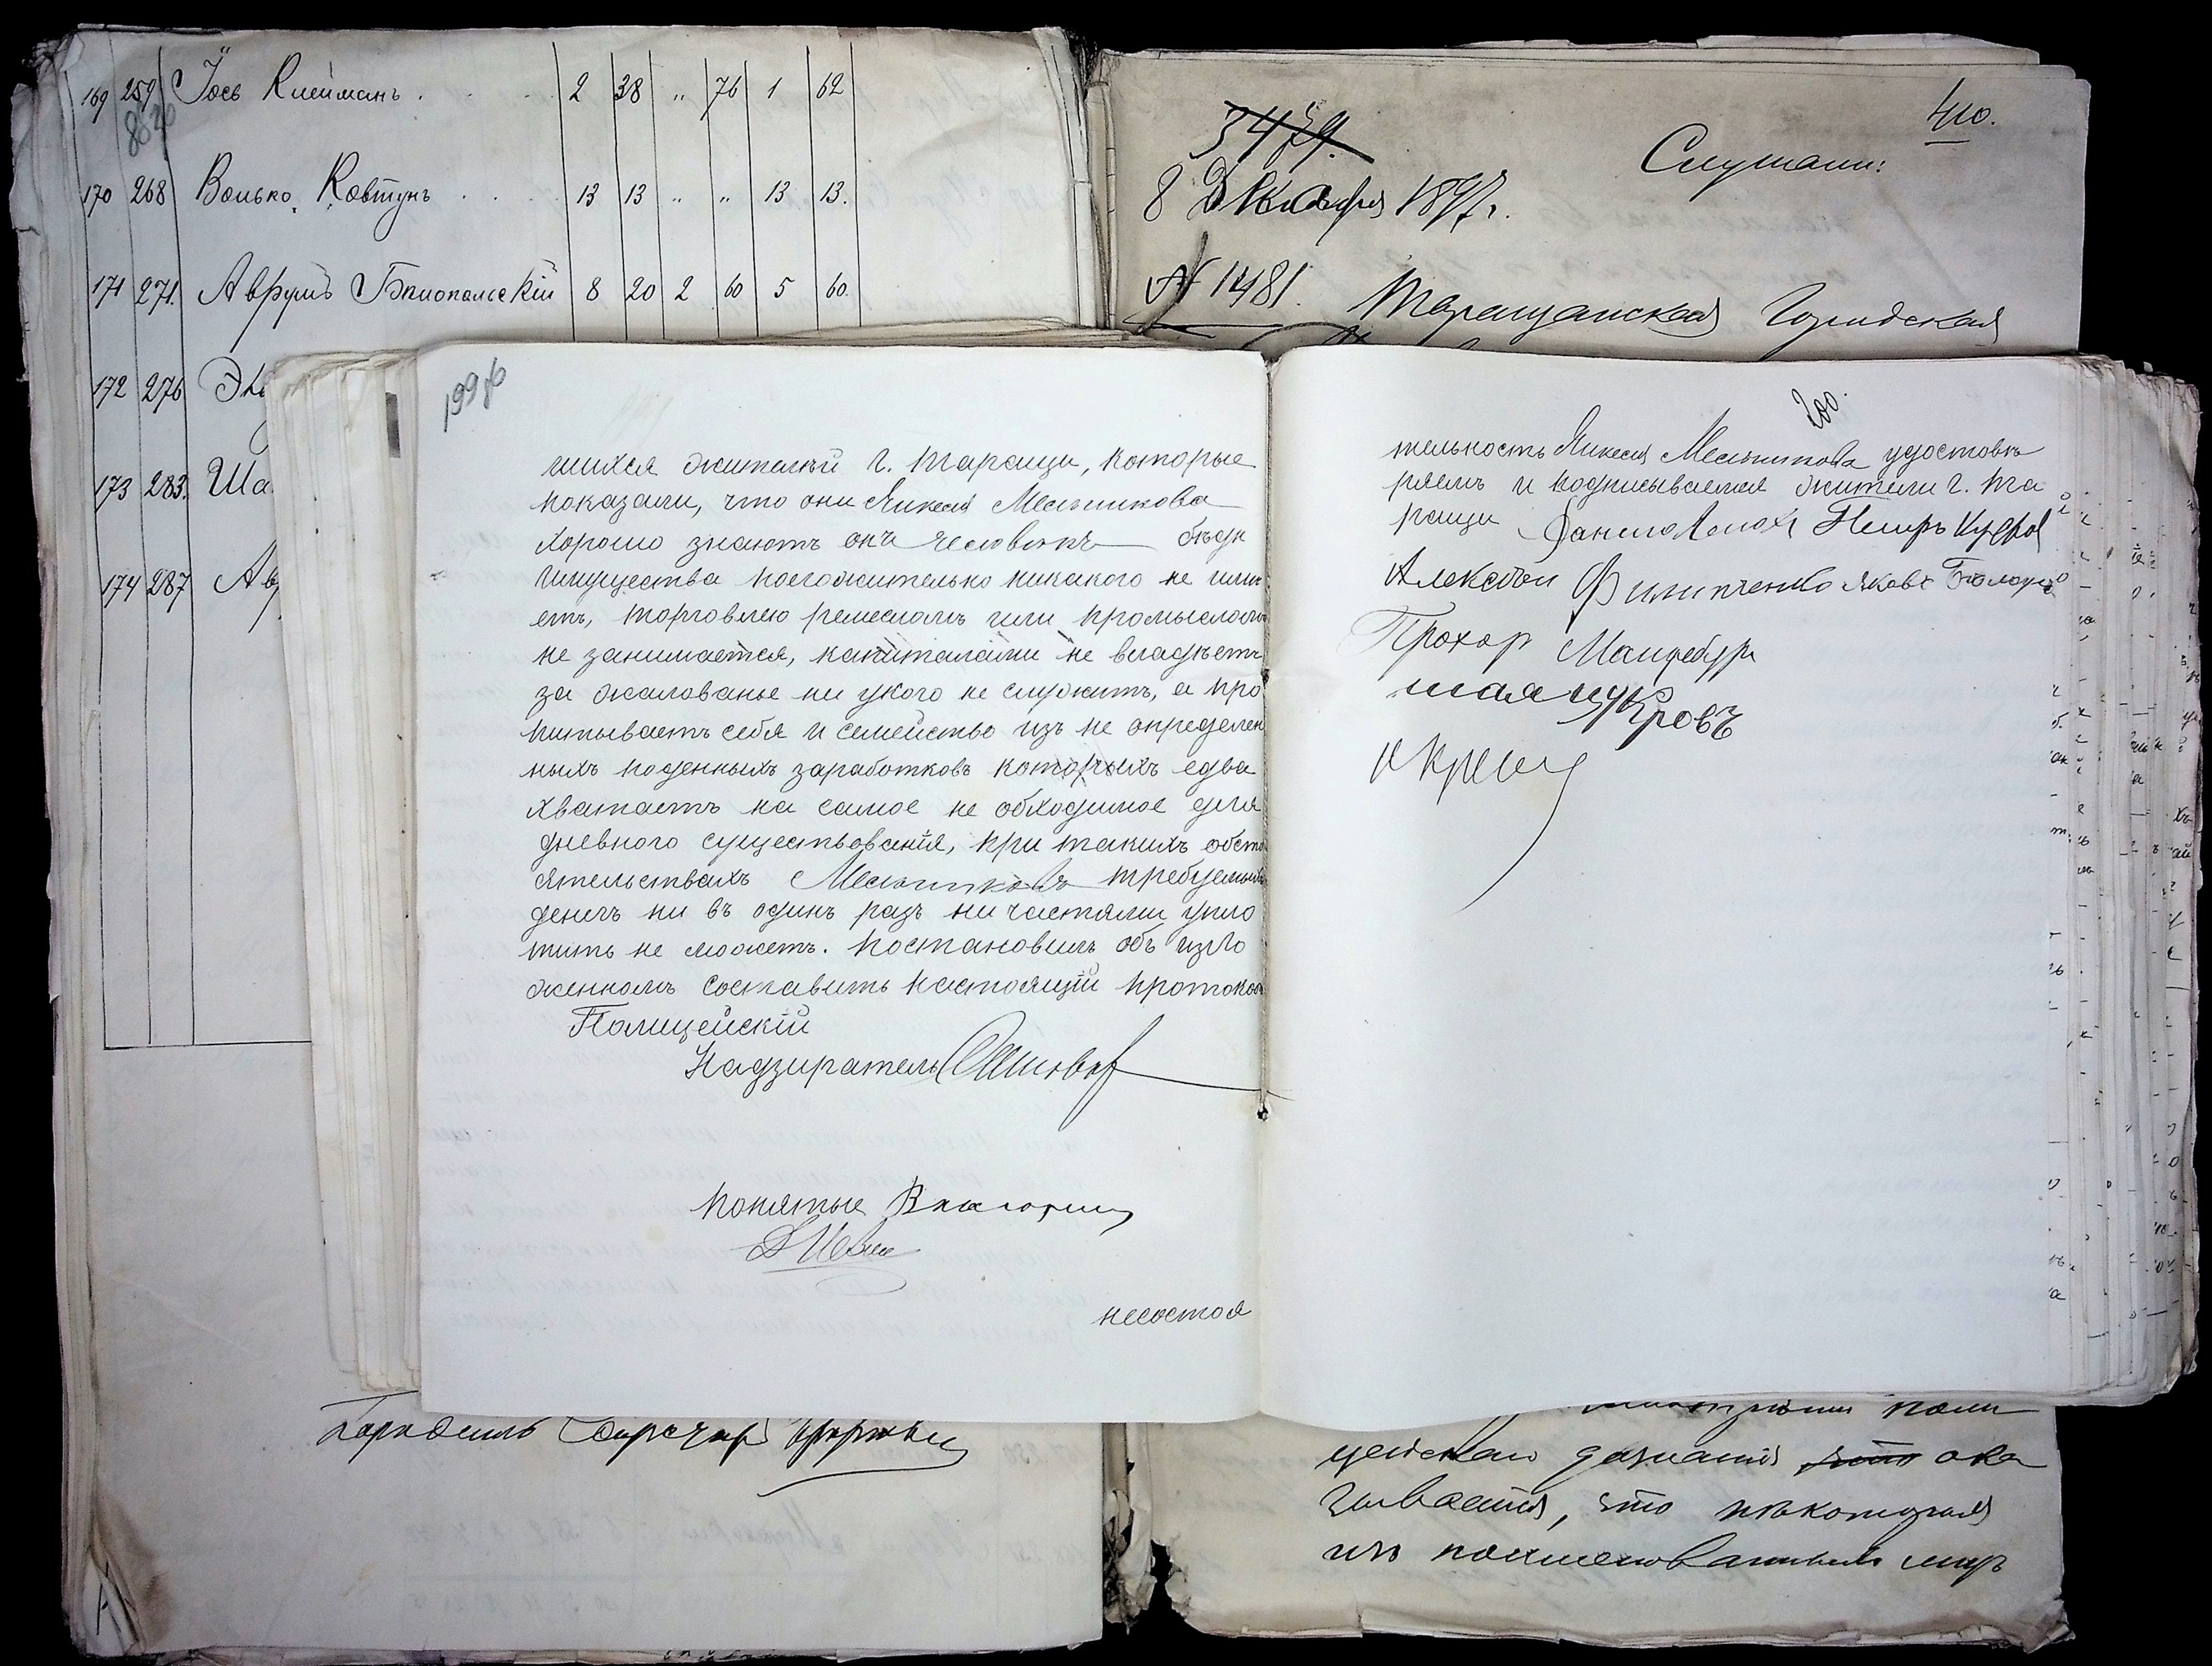 169 259 Іось Клейманъ . . . 2 38 " 76 1 62
170 268 Волько Ковтунъ . . . 13 13 " " 13 13.
171 271. Аврумъ Бялопольскій 8 20 2 60 5 60.
172 276
173 283. Ша
174 287 Ав
410.
3479.
Слушали:
8 Декабря 1897г.
№ 1481.
Таращанская Городская
199об
шихся жителей г. Таращи, которые
показали, что они Мельникова
хорошо знаютъ онъ человекъ бѣдн
имущества положительно никакого не имѣ
етъ, торговлею ремесломъ или промысломъ
не занимается, капиталами не владѣетъ
за жалованье ни укого не служитъ, а про
питываетъ себя и семейство изъ не определен
ныхъ поденныхъ заработковъ которыхъ едва
хватаетъ на самое не обходимое для
дневного существованія, при такихъ обсто
ятельствахъ Мельниковъ требуемыхъ
денегъ ни въ одинъ разъ ни частями упло
тить не можетъ. Постановилъ объ изло
женномъ составить настоящій протоколъ
Полицейскій
Надзиратель
Понятые
несостоя
200.
тельность Мельникова удостовѣ
ряемъ и подписываемся жители г. Та
ращи Данило Петръ
Алексѣй Филипченко Яковъ
Прохор
шая цукровъ
цейскаго дознанія что ока
зывается, что нѣкоторыя
изъ поименованныхъ лицъ